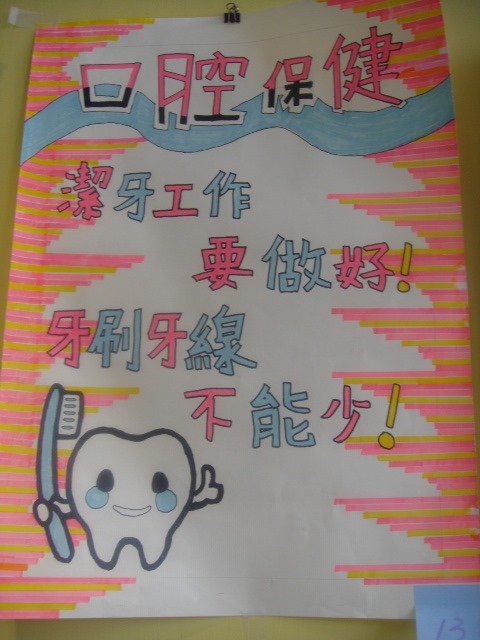 口腔保健
潔牙工作
要做好!
牙刷牙線
不能少!
13